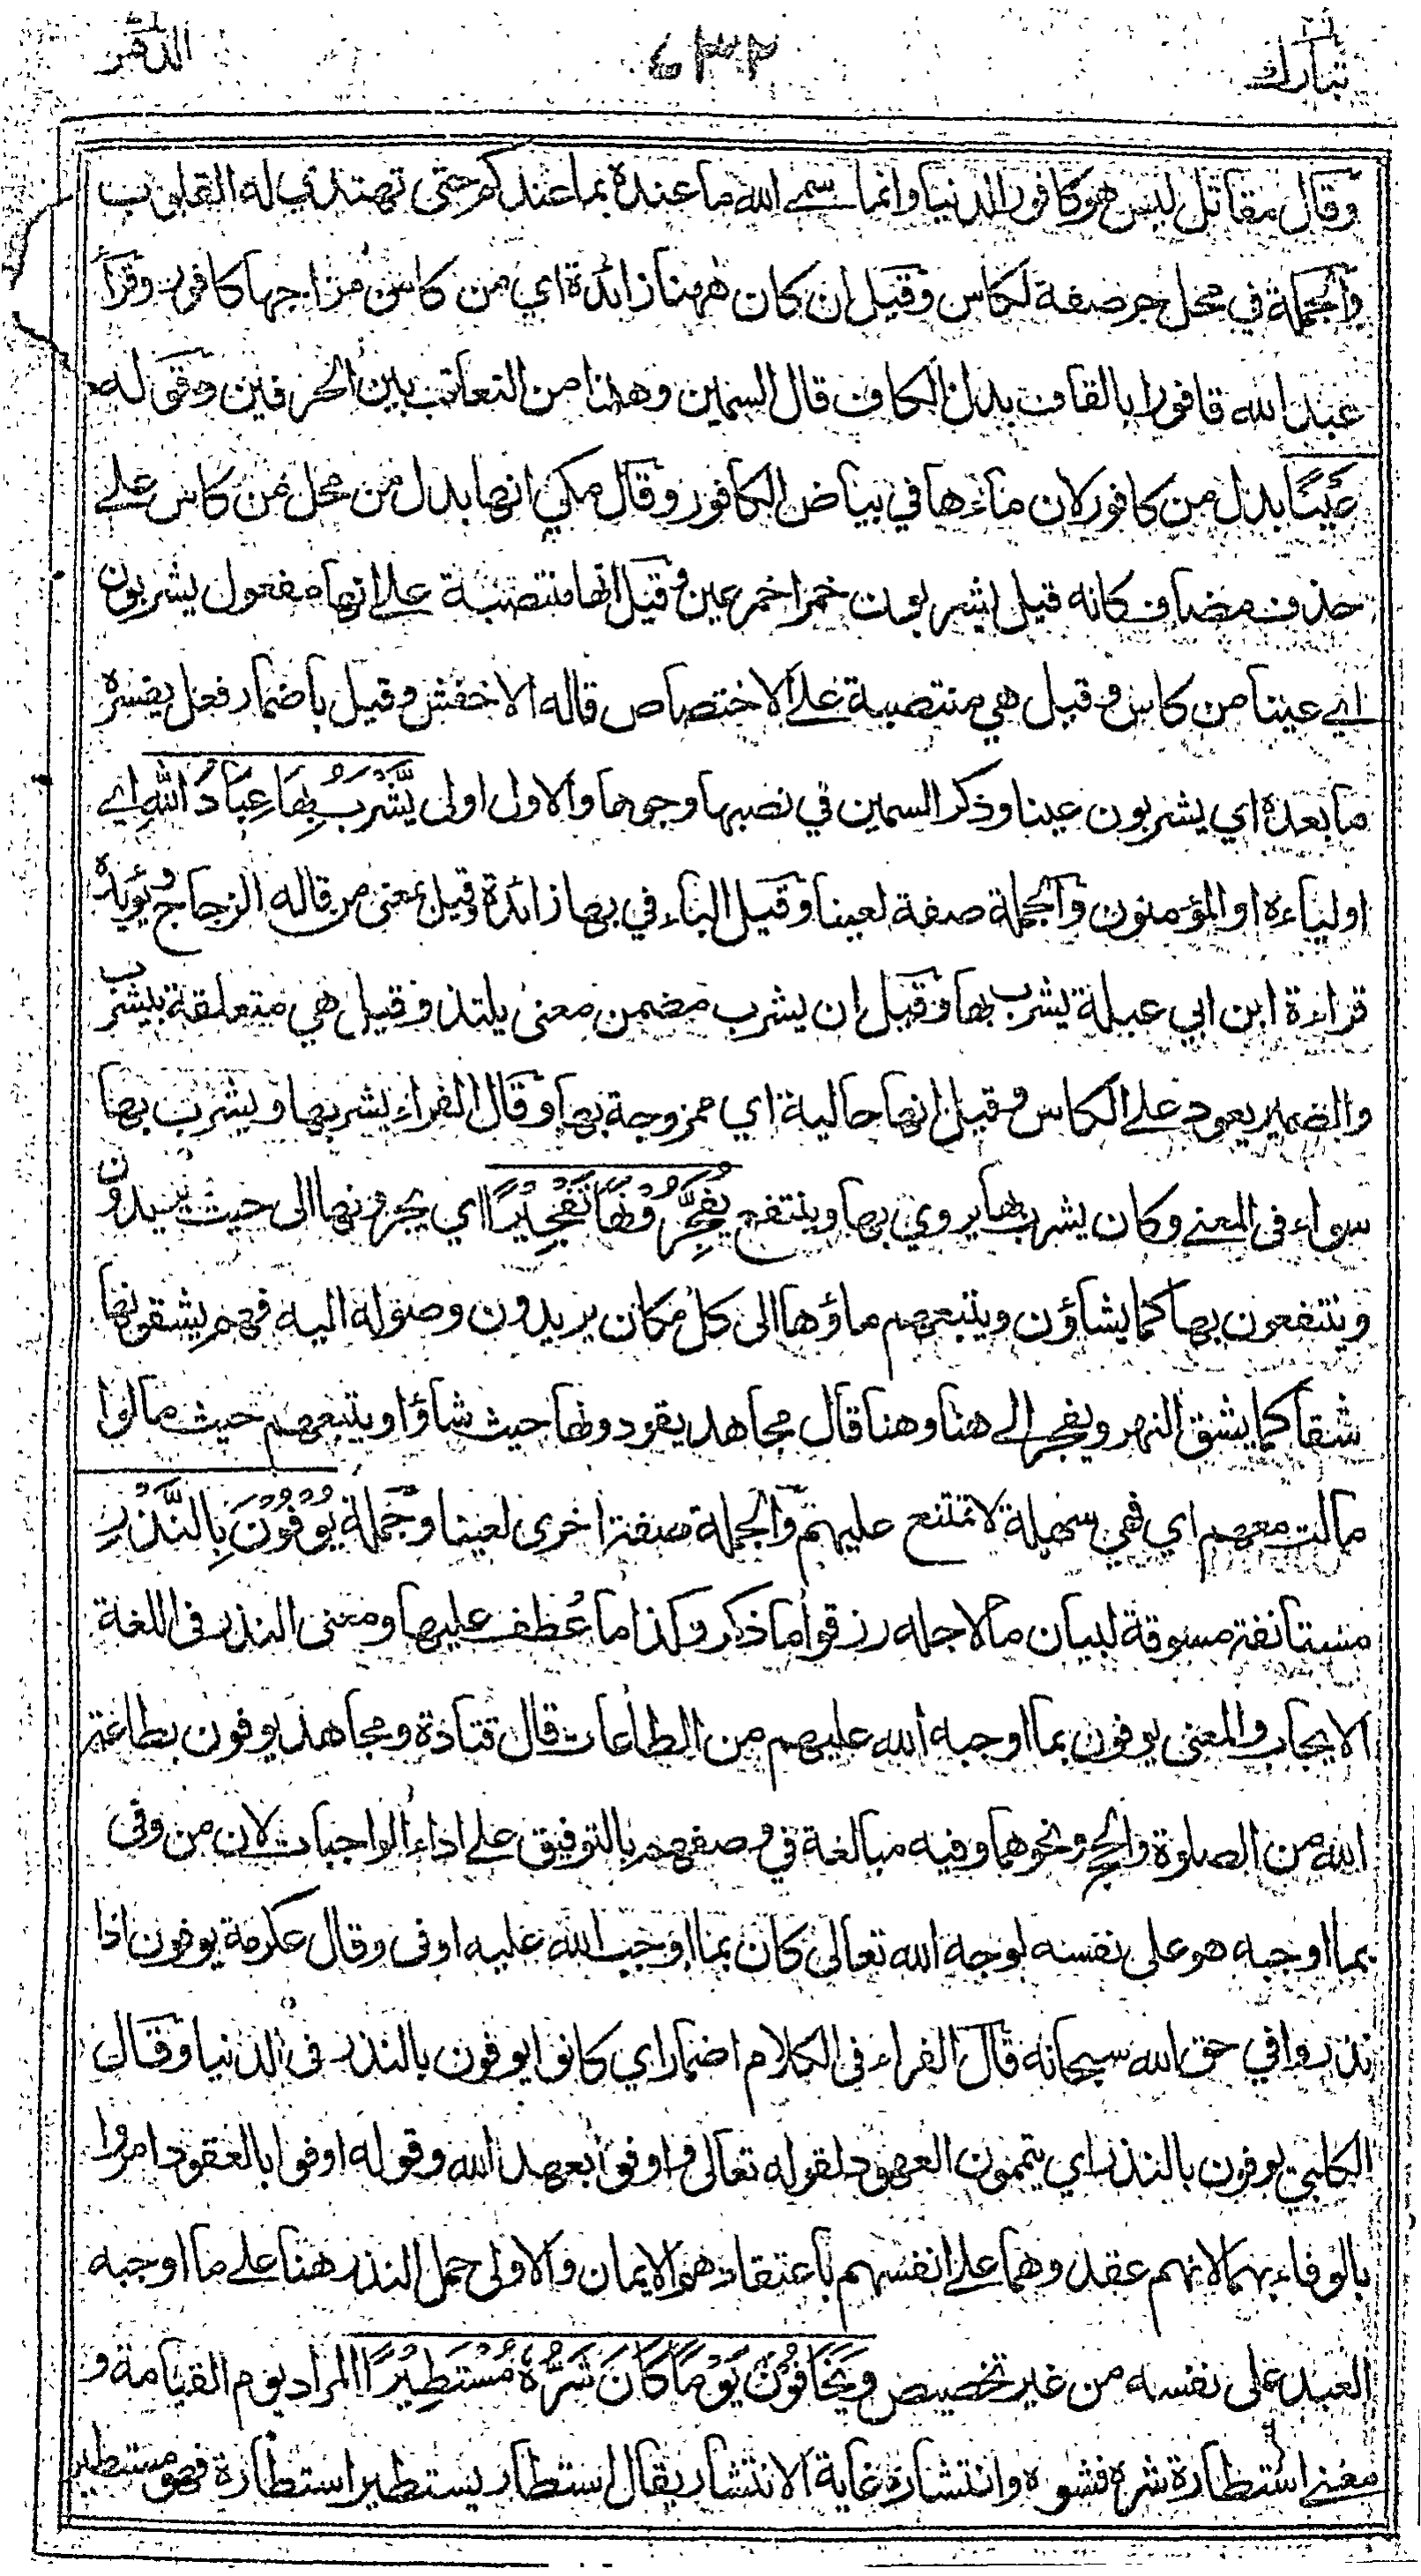 تبارك ٦٣٢ الدهر
وقال مقاتل ليس هو كافور الدنيا وانما سمے الله ما عنده بما عندكم حتى تهتدي له القلوب
والجملة في محل جر صفة لكاس وقيل ان كان ههنا زائدة اي من كاس مزاجها كافور وقرأ
عبد الله قافورا بالقاف بدل الكاف قال السمين وهذا من التعاقب بين الحرفين وقوله
عَيْنًا بدل من كافور لان ماءها في بياض الكافور وقال مكي انها بدل من محل من كاس علے
حذف مضاف كانه قيل يشربون خمرا خمر عين وقيل انها منتصبة علے انها مفعول يشربون
اے عينا من كاس وقيل هي منتصبة علے الاختصاص قاله الاخفش وقيل باضمار فعل يفسره
ما بعده اي يشربون عينا وذكر السمين في نصبها وجوها والاول اولى يَّشْرَبُ بِهَا عِبَادُ اللّٰهِ اے
اولياءه او المؤمنون والجملة صفة لعينا وقيل الباء في بها زائدة وقيل بمعنى من قاله الزجاج ويؤيده
قراءة ابن ابي عبلة يشربها وقيل ان يشرب مضمن معنى يلتذ وقيل هي متعلقة بيشرب
والضمير يعود علے الكاس وقيل انها حالية اي ممزوجة بها وقال الفراء يشربها ويشرب بها
سواء فى المعنے وكان يشرب بها يروي بها وينتفع يُفَجِّرُوْنَهَا تَفْجِيْرًا اي يجرونها الى حيث يريدون
وينتفعون بها كما يشاؤن ويتبعهم ماؤها الى كل مكان يريدون وصوله اليه فهم يشقونها
شقا كما يشق النهر ويفجر الے هنا وهنا قال مجاهد يقودونها حيث شاؤا ويتبعهم حيث مالوا
مالت معهم اي فهي سهلة لا تمتنع عليهم والجملة صفة اخرى لعينا وجملة يُوْفُوْنَ بِالنَّذْرِ
مستانفة مسوقة لبيان ما لاجله رزقوا ما ذكر وكذا ما عُطف عليها ومعنى النذر فى اللغة
الايجاب والمعنى يوفون بما اوجبه الله عليهم من الطاعات قال قتادة ومجاهد يوفون بطاعة
الله من الصلوة والحج ونحوهما وفيه مبالغة في وصفهم بالتوفيق علے اداء الواجبات لان من وفى
بما اوجبه هو على نفسه لوجه الله تعالى كان بما اوجب الله عليه اوفى وقال عكرمة يوفون اذا
نذروا في حق الله سبحانه قال الفراء فى الكلام اضمار اي كانوا يوفون بالنذر فى الدنيا وقال
الكلبي يوفون بالنذر اي يتممون العهود لقوله تعالى واوفوا بعهد الله وقوله اوفوا بالعقود امروا
بالوفاء بهما لانهم عقدوهما علے انفسهم باعتقادهم الايمان والاولى حمل النذر هنا علے ما اوجبه
العبد على نفسه من غير تخصيص وَيَخَافُوْنَ يَوْمًا كَانَ شَرُّهٗ مُسْتَطِيْرًا المراد يوم القيامة و
معنے استطارة شره فشوه وانتشاره غاية الانتشار يقال استطار يستطير استطارة فهو مستطير